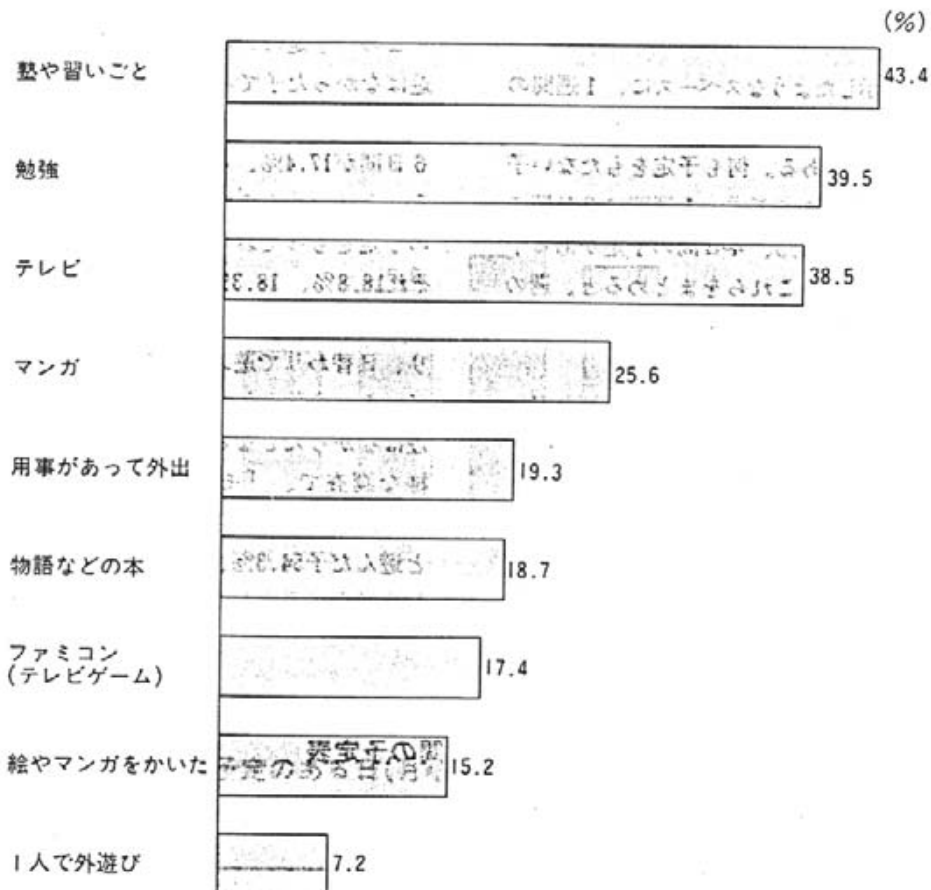 (%)
塾や習いごと 43.4
勉強 39.5
テレビ 38.5
マンガ 25.6
用事があって外出 19.3
物語などの本 18.7
ファミコン
(テレビゲーム) 17.4
絵やマンガをかいた 15.2
1人で外遊び 7.2